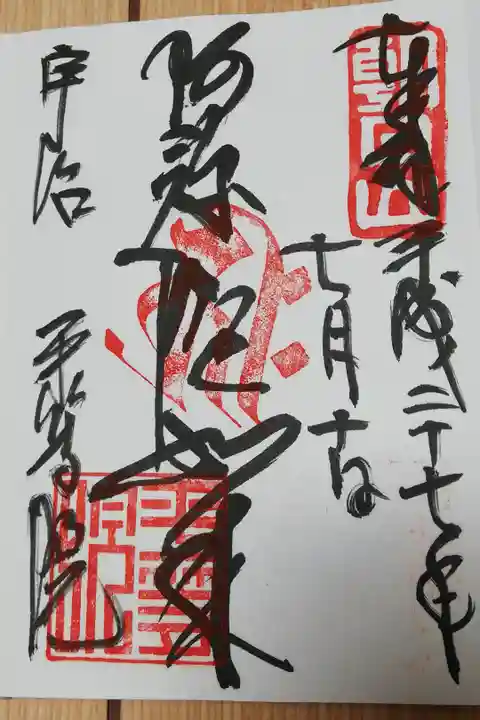 奉拝 平成二十七年
七月十日
阿弥陀如来
宇治 平等院